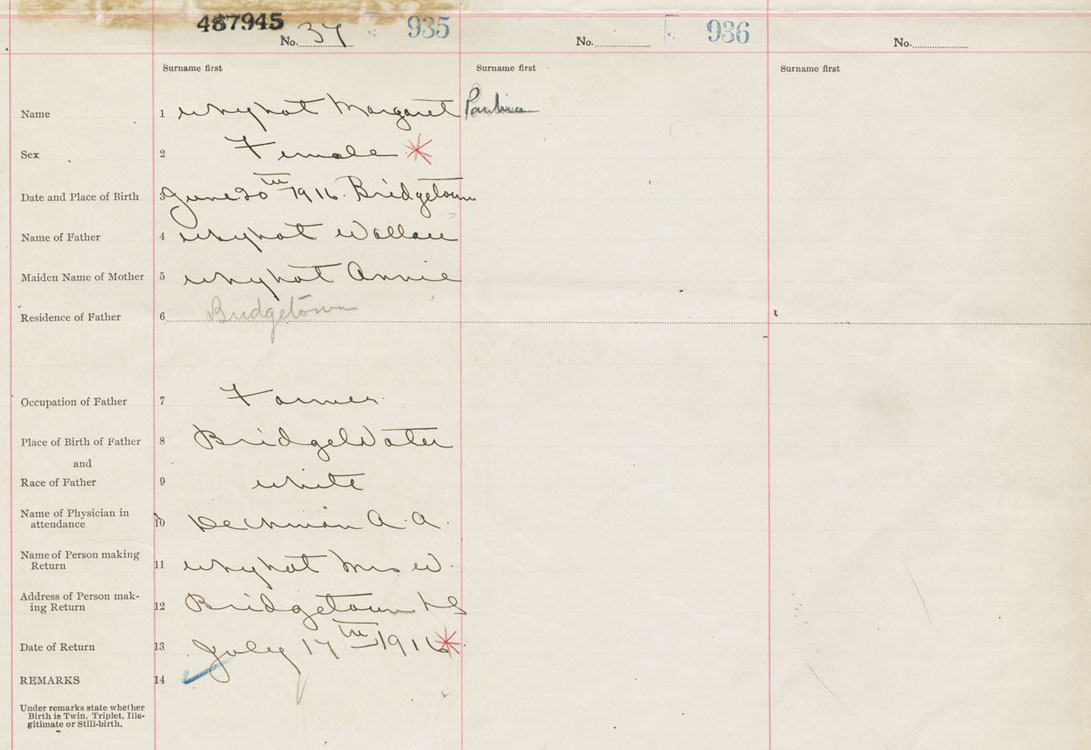 487945
No. 37 935 No. 936 No.
Surname first Surname first Surname first
Name 1 Whynot Margaret Paulina
Sex 2 Female
Date and Place of Birth 3 June 20th 1916. Bridgetown
Name of Father 4 Whynot Wallace
Maiden Name of Mother 5 Whynot Annie
Residence of Father 6 Bridgetown
Occupation of Father 7 Farmer
Place of Birth of Father 8 BridgeWater
and
Race of Father 9 White
Name of Physician in
attendance 10 Dechman A. A.
Name of Person making
Return 11 Whynot Mrs W.
Address of Person mak-
ing Return 12 Bridgetown NS
Date of Return 13 July 17th 1916
REMARKS 14
Under remarks state whether
Birth is Twin, Triplet, Ille-
gitimate or Still-birth.